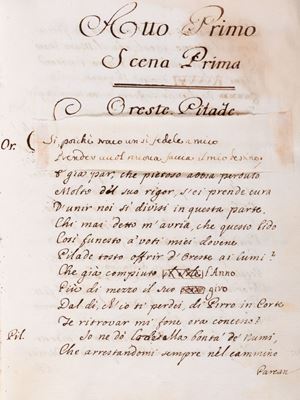 Atto Primo
Scena Prima
Oreste. Pilade.
Or. Si, poiché trovo un si fedele amico
Prender vuol nuova faccia il mio destino.
E già par, che pietoso abbia perduto
Molto del suo rigor, s'ei prende cura
D'unir noi si divisi in questa parte.
Chi mai detto m'avria, che questo lido
Così funesto a' voti miei dovesse
Pilade tosto offrir d'Oreste ai lumi?
Che già compiuto l'Anno
Più di mezzo il suo giro
Dal dì, ch'io ti perdei, di Pirro in Corte
Te ritrovar mi fosse ora concesso?
Pil. Io ne dò lode alla bontà de' Numi,
Che arrestandomi sempre nel cammino
Parean